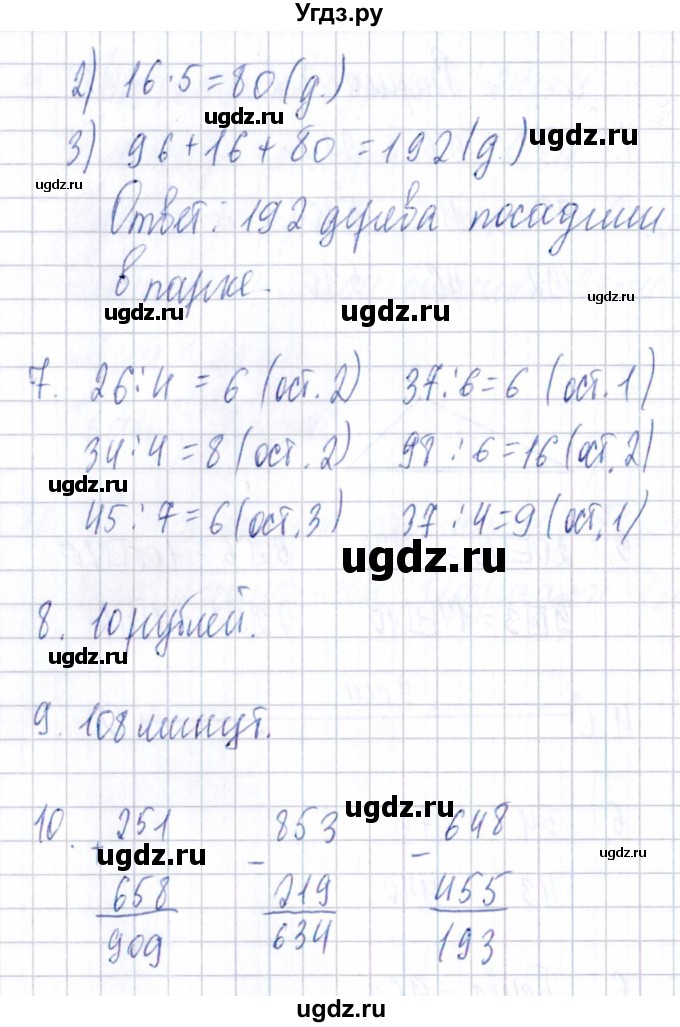 Угдз.ру
2) 16·5=80(д.)
ugdz.ru
3) 96+16+80=192(д.)
ugdz.ru
ugdz.ru
Ответ: 192 дерева посадили
в парке.
ugdz.ru
ugdz.ru
7. 26:4=6(ост.2) 37:6=6(ост.1)
34:4=8(ост.2) 98:6=16(ост.2)
ugdz.ru
45:7=6(ост.3) 37:4=9(ост.1)
ugdz.ru
8. 10 рублей.
ugdz.ru
9. 108 минут.
ugdz.ru
10. +251 -853 -648
ugdz.ru
ugdz.ru
658 219 455
909 634 193
ugdz.ru